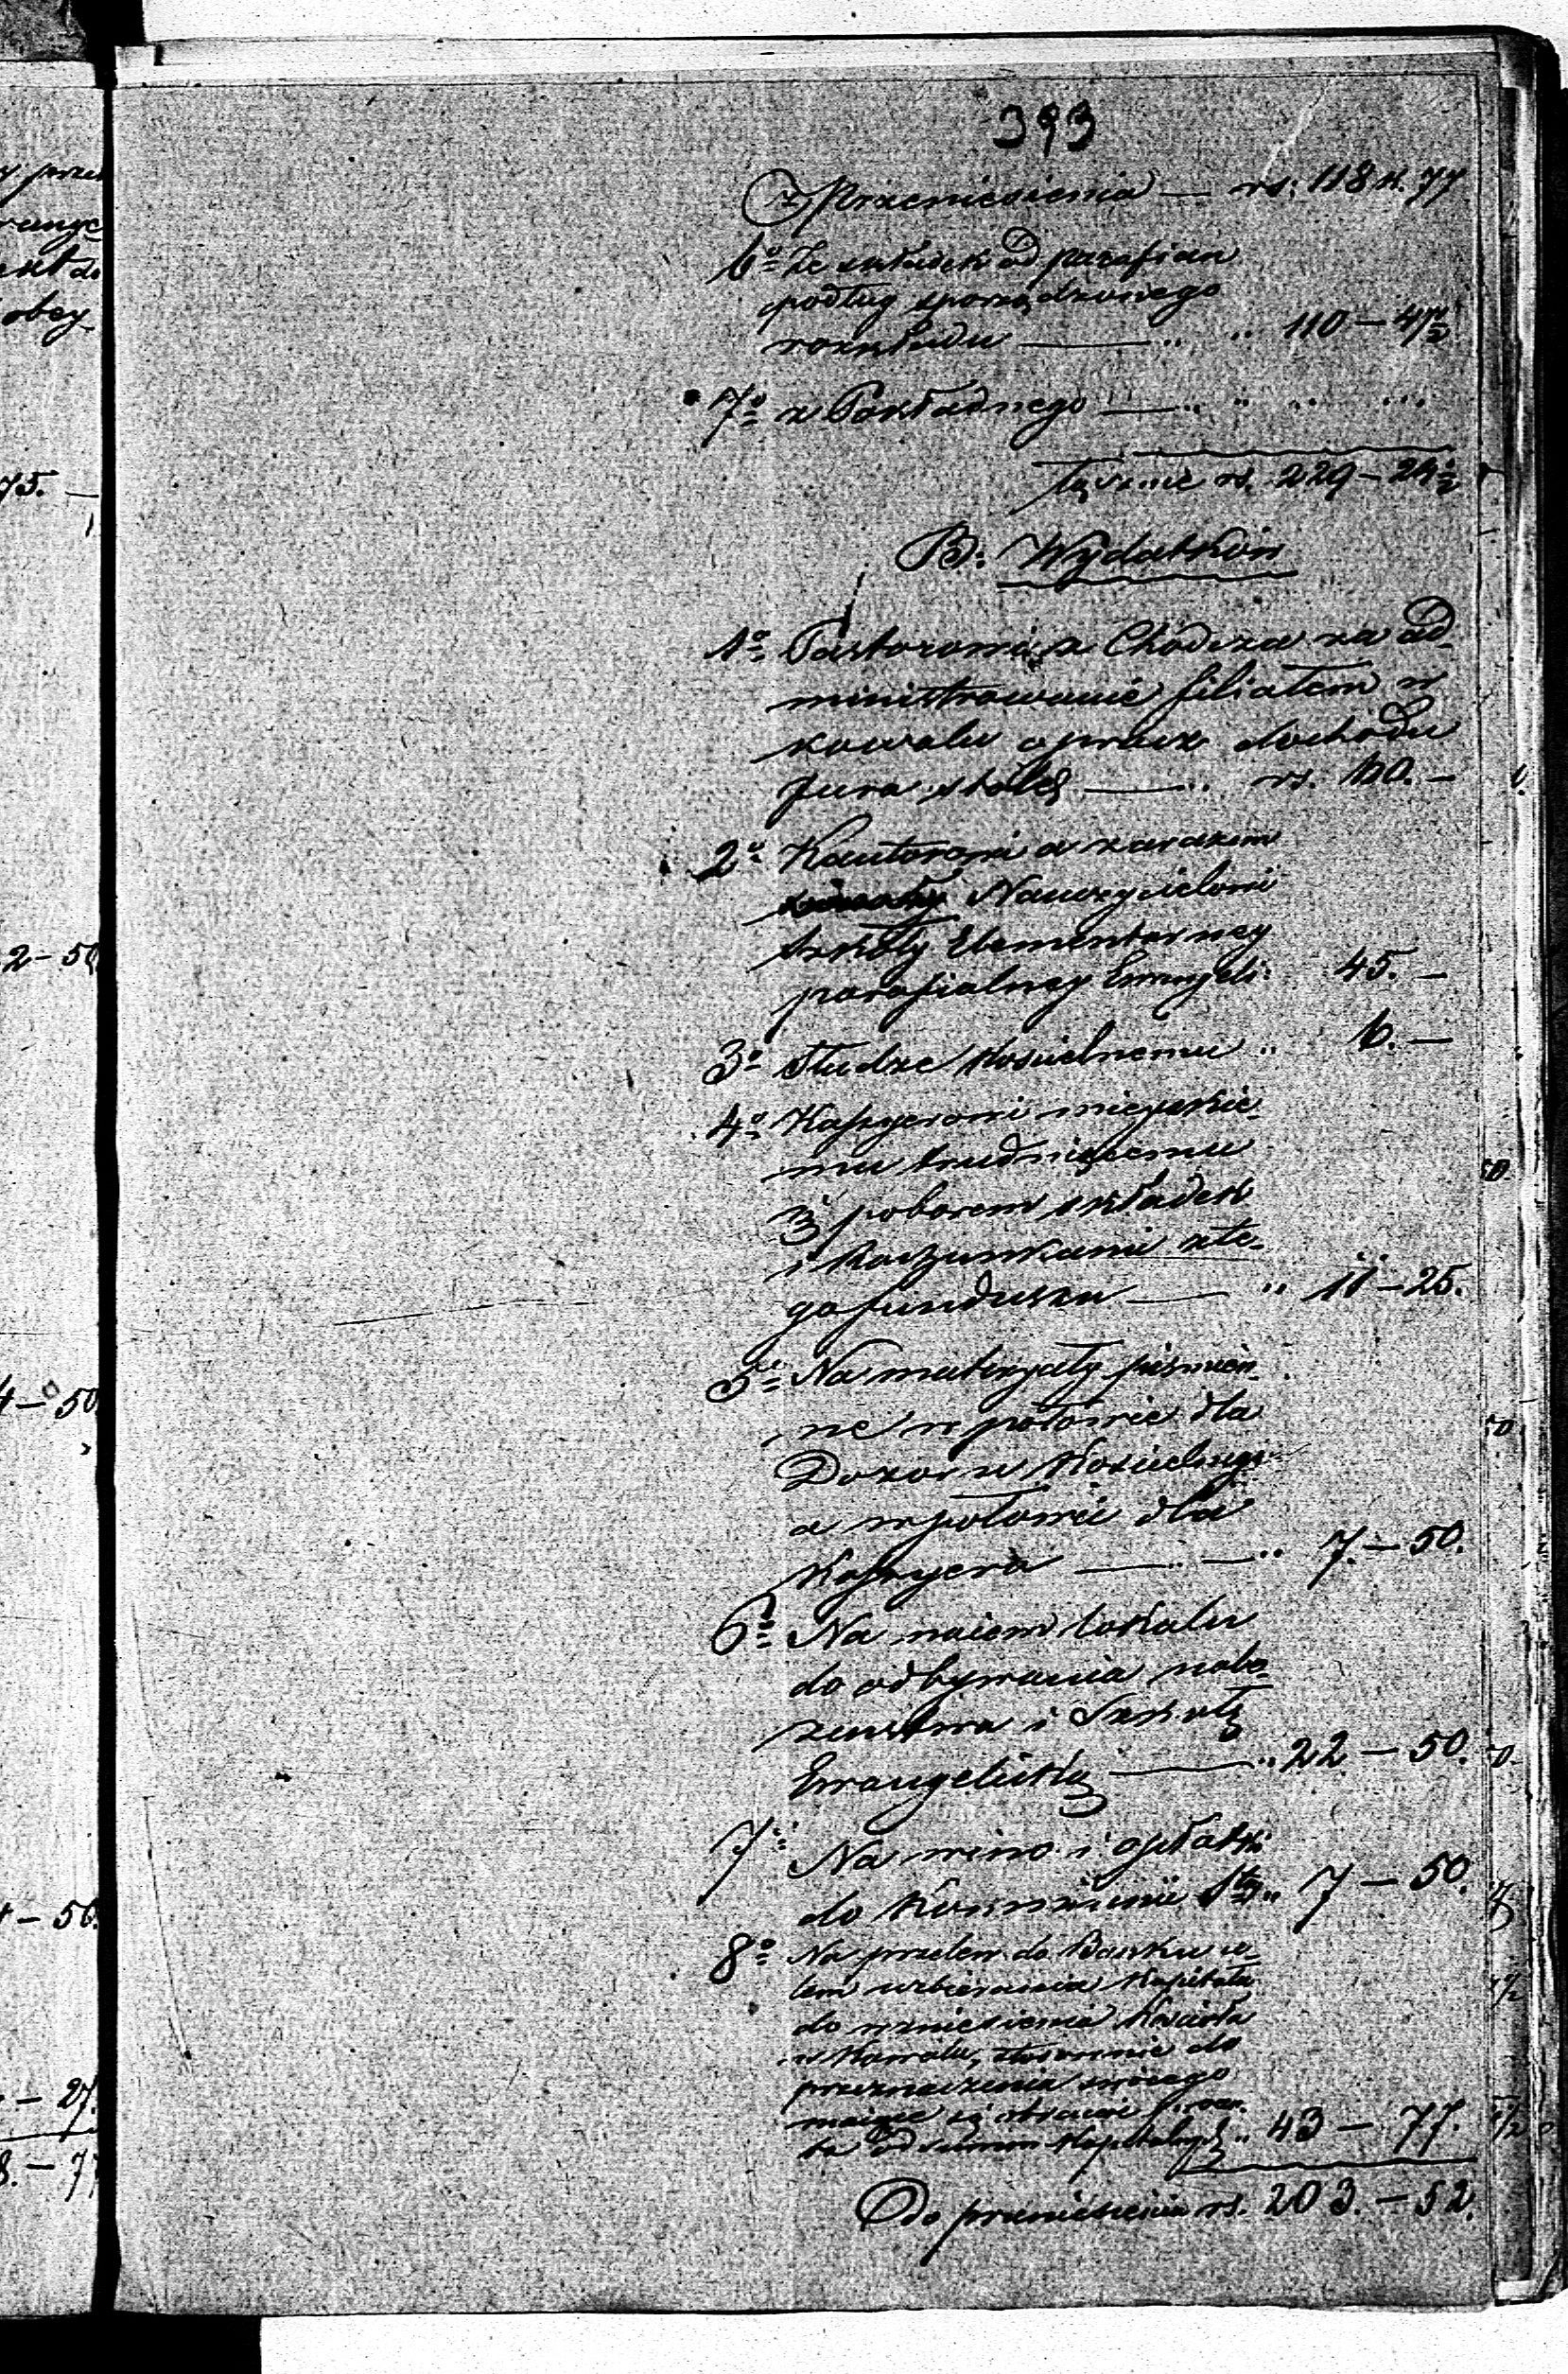 393
Z Przeniesienia — rs. 118 k. 77
6o Ze składek od parafian
podług sporządzonego
rozkładu — „ „ 110 — 47½
7o z Pokładnego — „ „ „ „
Łącznie rs. 229 — 24½
B. Wydatków
1o Pastorowi z Chodcza za ad-
ministrowanie filiałem w
Kowalu oprócz dochodu
Jura stolę — „ rs. 60. —
2o Kantorowi a zarazem
Nauczycielowi
Szkoły Elementarney
parafialney Ewangeli: 45. —
3o Słudze Kościelnemu „ 6. —
4o Kassyerowi mieyskie-
mu trudniącemu
się poborem składek
i Rachunkami z te-
go funduszu — „ 11 — 25.
5o Na materyały piśmien-
ne w połowie dla
Dozoru Kościelnego
a w połowie dla
Kassyera — — „ 7. — 50.
6o Na naiem lokalu
do odbywania nabo-
żeństwa i Szkołę
Ewangelicką — „ 22 — 50.
7o Na wino i opłatki
do Kommunii Stey „ 7 — 50.
8o Na przelew do Banku ce-
lem uzbierania Kapitału
do wzniesienia Kościoła
w Kowalu, stosownie do
przeznaczenia swoiego
maiące się obracać procen-
ta od summ Kapitalnych „ 43 — 77.
Do przeniesienia rs. 203. — 52.
y przez
75. —
2 — 50
4 — 50
— 50.
— 27.
8. — 77